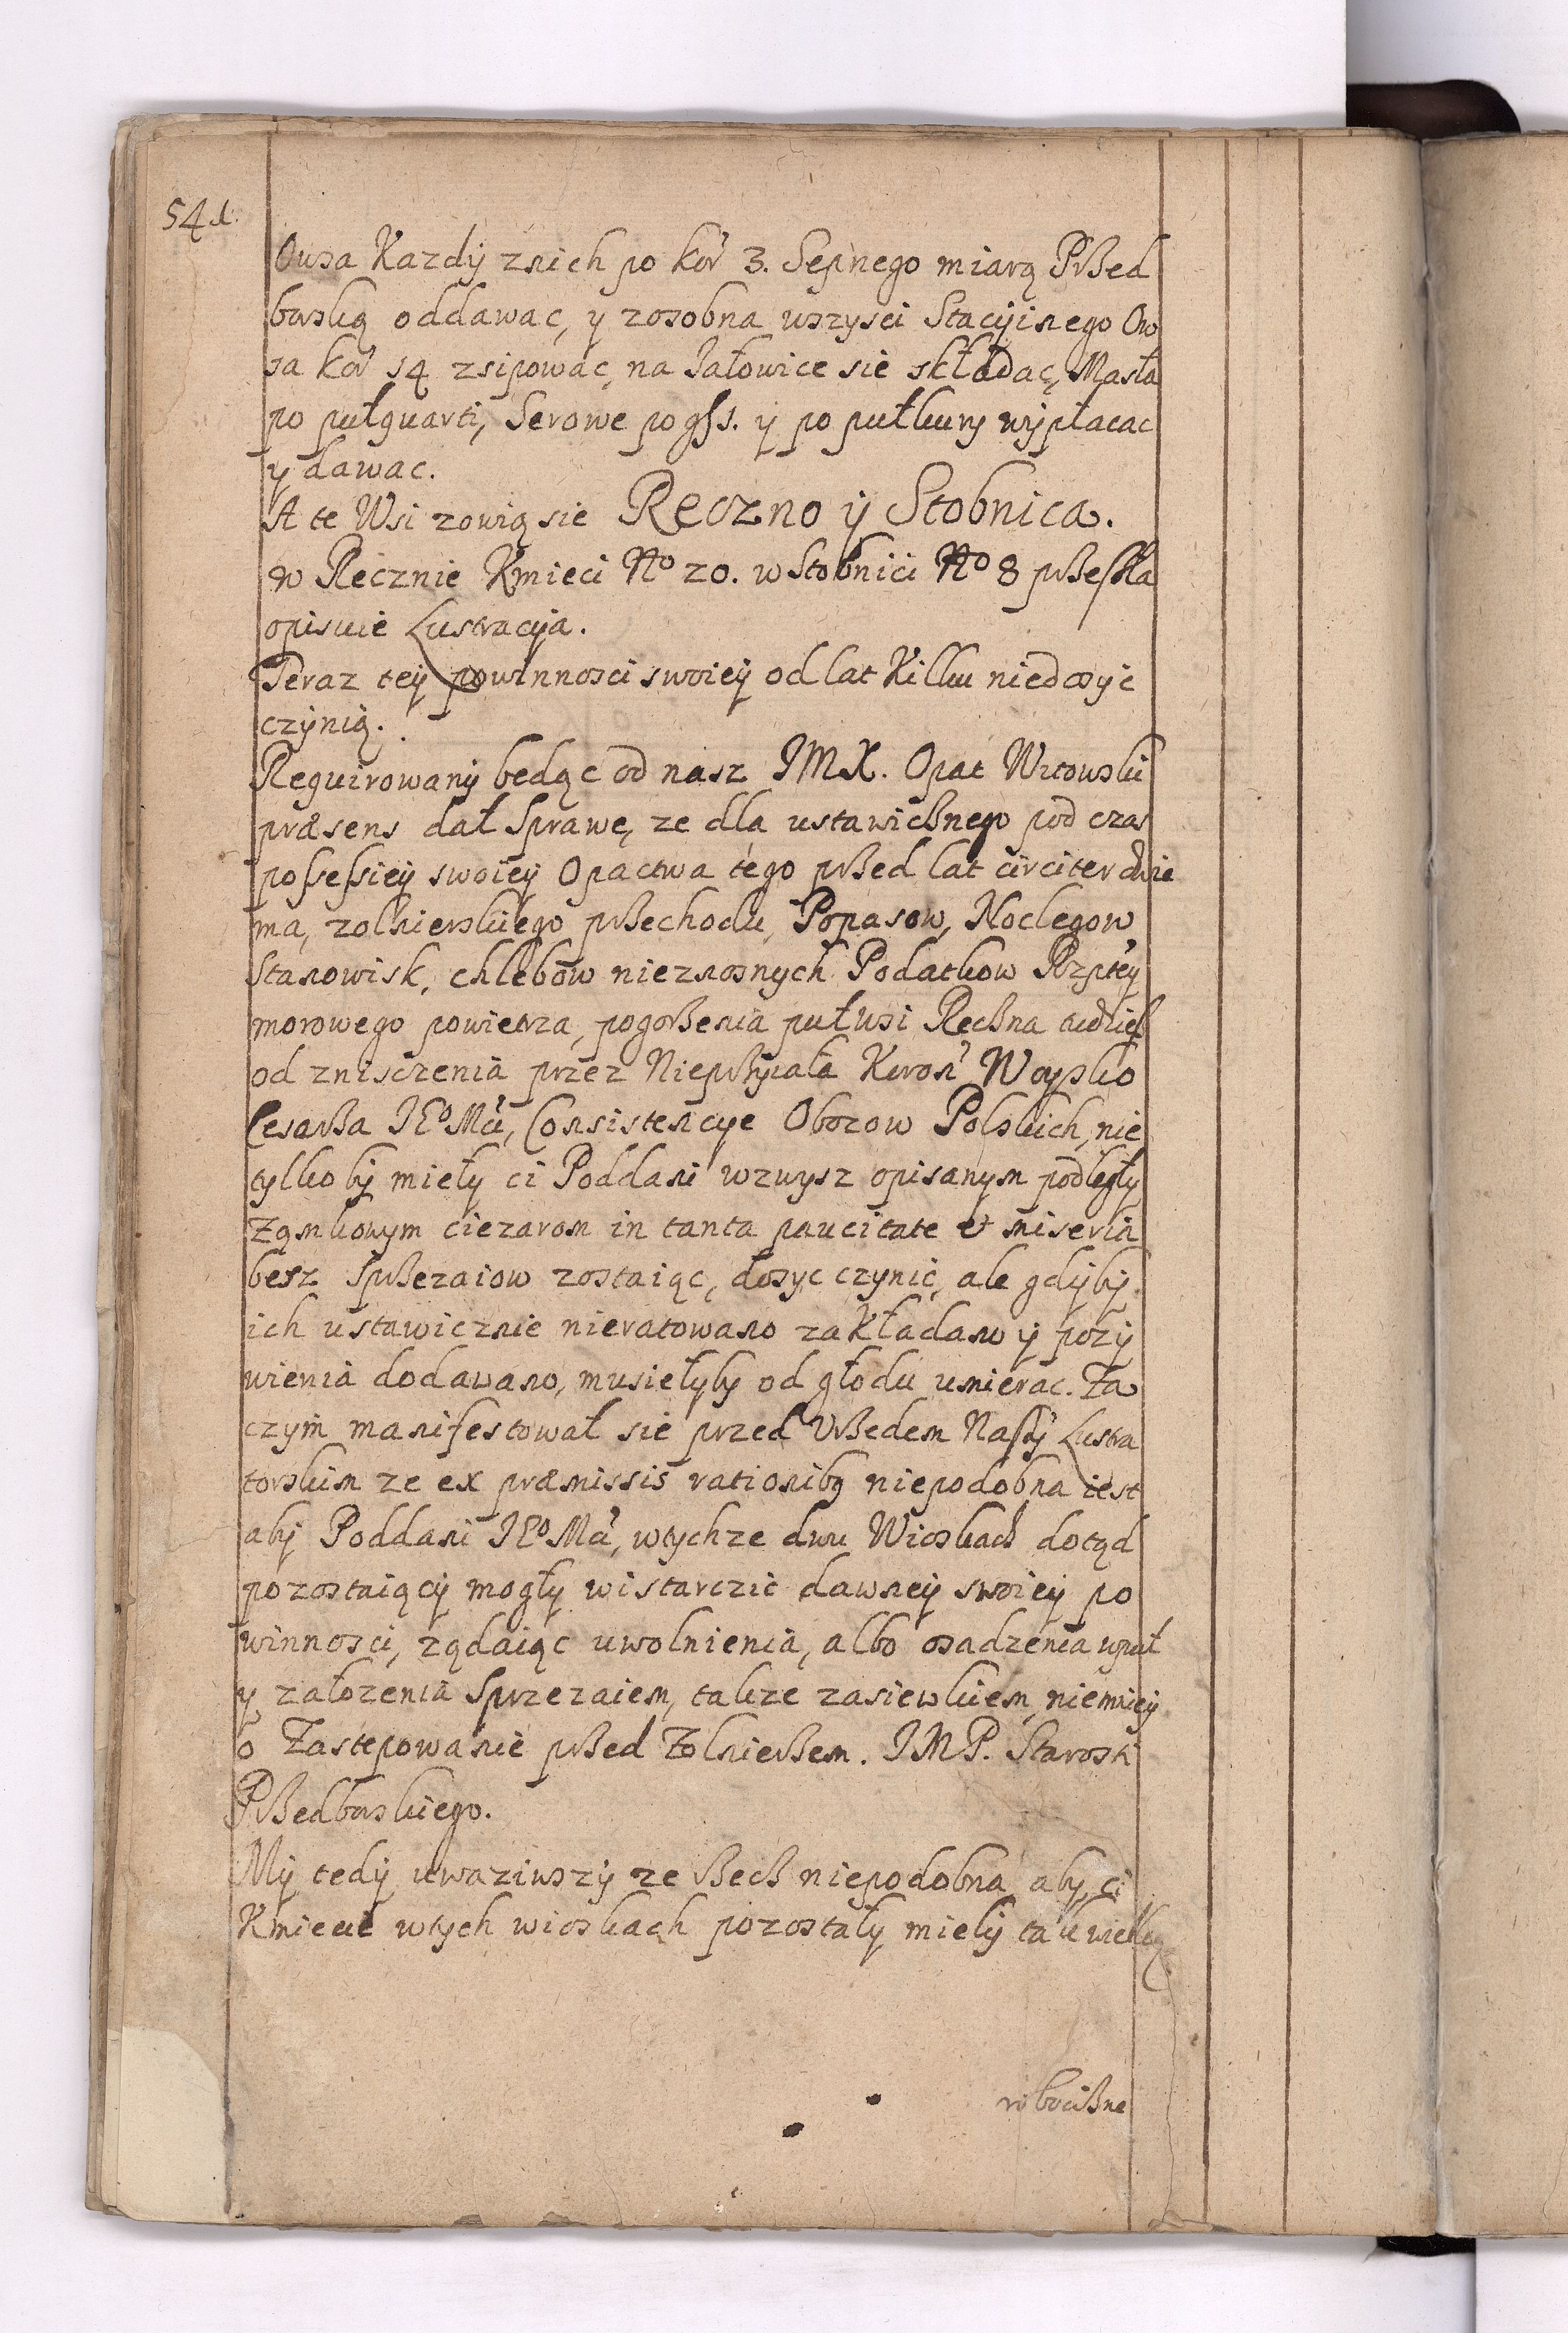 54 d.
Owsa Kazdÿ znich po kor 3. Sepnego miarą Przed
borską oddawac, y zosobna wszysci Stacyinego Ow
sa kor 54 zsipowac, na Jałowice sie składac, Masła
po pułquarti, Serowe po gſs. ÿ po pułkury wÿpłacac
y dawac.
A te Wsi zowią sie Reczno ÿ Stobnica.
w Recznie Kmieci No 20. w Stobnici No 8 przeszła
opisuie Lustracyia.
Teraz teÿ powinnosci swoieÿ od lat Kilku niedosyc
czÿnią.
Requirowanÿ bedąc od nasz JMX. Opat Witowski
præsens dał Sprawę, ze dla ustawicznego pod czas
possessieÿ swoieÿ Opactwa tego przed lat circiter dwie
ma, zolnierskiego przechodu, Popasow, Noclegow
Stanowisk, chlebow nieznosnych Podatkow Rzptey
morowego powietrza, pogorzenia puł wsi Reczna tudziesz
od znisczenia przez Nieprzyiaciela Koron Woysko
Cesarza JEo Mci, Consistencye Obozow Polskich, nie
tylko bÿ mieły ci Poddani wzwysz opisanym podległy
Zamkowym ciezarom in tanta paucitate et miseria
besz Sprzezaiow zostaiąc, dosyc czynic, ale gdÿbÿ
ich ustawicznie nieratowano zakładano ÿ pozÿ
wienia dodawano, musiełyby od głodu umierac. Za
czym manifestował sie przed Urzedem Naszÿ Lustra
torskim ze ex præmissis rationibus niepodobna iest
abÿ Poddani JEo Mci, wtychze dwu Wioskach dotąd
pozostaiącÿ mogłÿ wistarczic dawneÿ swoieÿ po
winnosci, ządaiąc uwolnienia, albo osadzenia wpuł
y założenia Sprzezaiem, takze zasiewkiem, niemnieÿ
o Zastepowanie przed Zolnierzem. JMP. Starosti
Przedborskiego.
Mÿ tedÿ uwaziwszÿ ze rzecz niepodobna aby ci
Kmiecie wtych wioskach pozostałÿ mielÿ tak wielką
robociznę